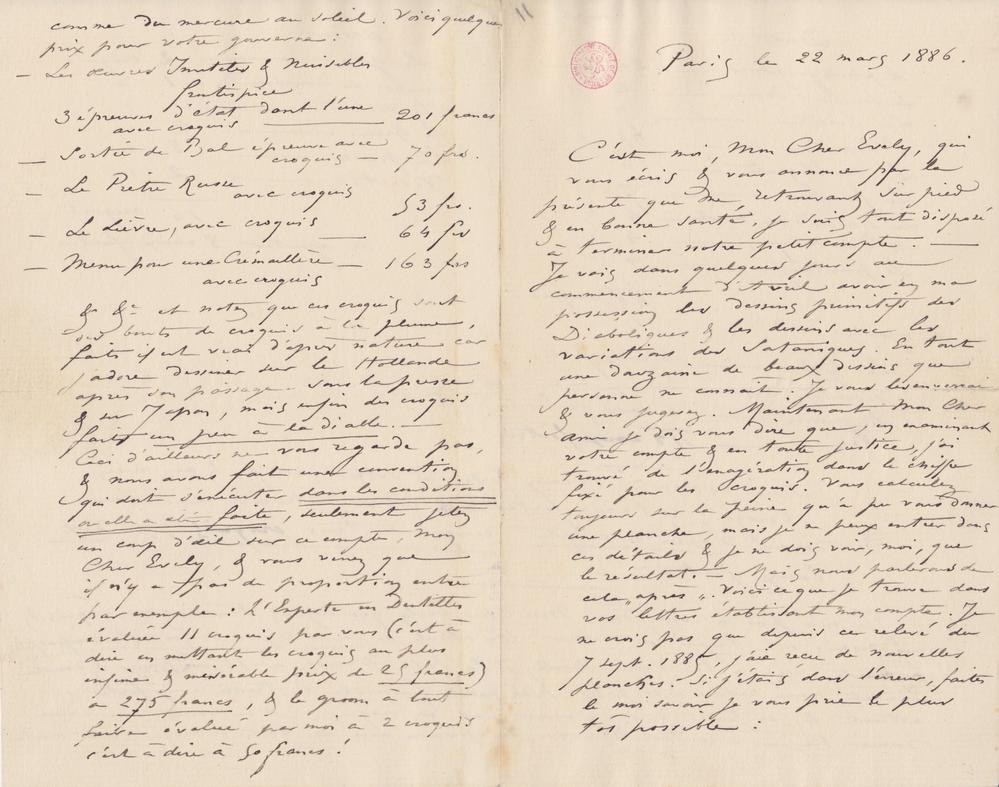 Paris le 22 mars 1886.
C'est moi, Mon Cher Evely, qui
vous écris & vous annonce par la
présente que me retrouvant sur pied
& en bonne santé, je suis tout disposé
à terminer notre petit compte. —
Je vais dans quelques jours au
commencement d'Avril avoir en ma
possession les dessins primitifs des
Diaboliques & les dessins avec les
variations des Sataniques. En tout
une douzaine de beaux dessins que
personne ne connait. Je vous les enverrai
& vous jugerez. Maintenant Mon Cher
ami je dois vous dire que, en examinant
votre compte & en toute justice, j'ai
trouvé de l'exagération dans le chiffre
fixé pour les croquis. Vous calculez
toujours sur la peine qu'a pu vous donner
une planche, mais je ne peux entrer dans
ces détails & je ne dois voir, moi, que
le résultat. — Mais nous parlerons de
cela „après". Voici ce que je trouve dans
vos lettres établissant mon compte. Je
ne crois pas que depuis ce relevé du
7 sept. 1885, j'aie recu de nouvelles
planches. Si j'étais dans l'erreur, faites
le moi savoir je vous prie le plus
tôt possible :
11
comme du mercure au soleil. Voici quelque
prix pour votre gouverne :
— Les œuvres Inutiles & Nuisibles
frontispice
3 épreuves d'état dont l'une
avec croquis 201 francs
— Sortie de Bal épreuve avec
croquis — 70 frs.
— Le Prètre Russe
avec croquis 53 frs.
— Le Lièvre, avec croquis — 64 frs
— Menu pour une Crémaillère — 163 frs
avec croquis
& &a et notez que ces croquis sont
des bouts de croquis à la plume,
faits il est vrai d'après nature car
j'adore dessiner sur le Hollande
après son passage sous la presse
& sur Japon, mais enfin des croquis
faits un peu à la diable. —
Ceci d'ailleurs ne vous regarde pas,
& nous avons fait une convention
qui doit s'exécuter dans les conditions
où elle a été faite, seulement jetez
un coup d'œil sur ce compte, mon
Cher Evely, & vous verrez que
il n'y a pas de proportion entre
par exemple : L'Experte en Dentelles
évaluée 11 croquis par vous (c'est à
dire en mettant les croquis au plus
infime & misérable prix de 25 francs)
à 275 francs, & le groom à tout
faire évalué par moi à 2 croquis
c'est à dire à 50 francs !